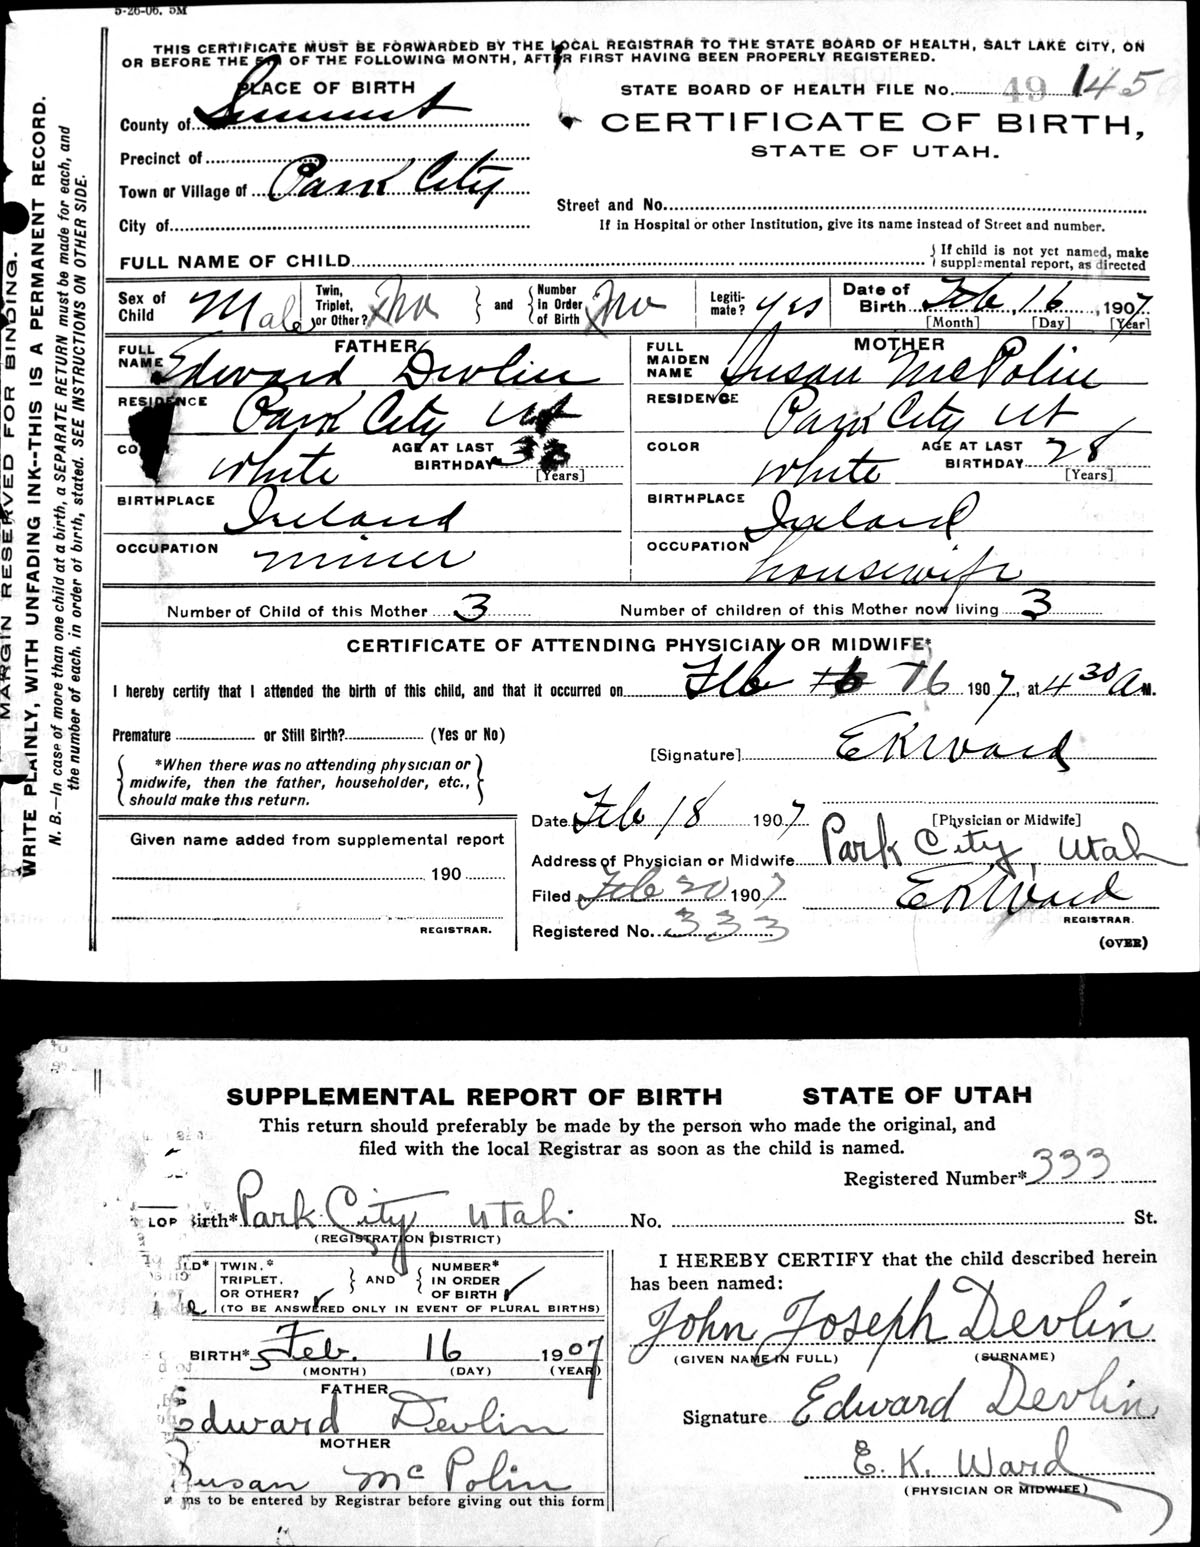 5-26-06. 5M
THIS CERTIFICATE MUST BE FORWARDED BY THE LOCAL REGISTRAR TO THE STATE BOARD OF HEALTH, SALT LAKE CITY, ON
OR BEFORE THE 5TH OF THE FOLLOWING MONTH, AFTER FIRST HAVING BEEN PROPERLY REGISTERED.
PLACE OF BIRTH
County of Summit
Precinct of
Town or Village of Park City
City of
STATE BOARD OF HEALTH FILE No. 49 145
CERTIFICATE OF BIRTH,
STATE OF UTAH.
Street and No.
If in Hospital or other Institution, give its name instead of Street and number.
FULL NAME OF CHILD
If child is not yet named, make
supplemental report, as directed
Sex of Child Male
Twin, Triplet, or Other? No
and
Number in Order of Birth No
Legitimate? yes
Date of Birth Feb 16, 1907
[Month] [Day] [Year]
FATHER
FULL NAME Edward Devlin
RESIDENCE Park City Ut
CO White
AGE AT LAST BIRTHDAY 38
[Years]
BIRTHPLACE Ireland
OCCUPATION miner
MOTHER
FULL MAIDEN NAME Susan McPolin
RESIDENCE Park City Ut
COLOR White
AGE AT LAST BIRTHDAY 28
[Years]
BIRTHPLACE Ireland
OCCUPATION housewife
Number of Child of this Mother 3
Number of children of this Mother now living 3
CERTIFICATE OF ATTENDING PHYSICIAN OR MIDWIFE*
I hereby certify that I attended the birth of this child, and that it occurred on Feb 16 16 1907, at 4 30 A M.
Premature or Still Birth? (Yes or No)
*When there was no attending physician or
midwife, then the father, householder, etc.,
should make this return.
[Signature] E K Ward
[Physician or Midwife]
Given name added from supplemental report
190
REGISTRAR.
Date Feb 18 1907
Address of Physician or Midwife Park City, Utah
Filed Feb 20 1907
E K Ward
REGISTRAR.
Registered No. 333
(OVER)
MARGIN RESERVED FOR BINDING.
WRITE PLAINLY, WITH UNFADING INK--THIS IS A PERMANENT RECORD.
N. B.—In case of more than one child at a birth, a SEPARATE RETURN must be made for each, and
the number of each, in order of birth, stated. SEE INSTRUCTIONS ON OTHER SIDE.
SUPPLEMENTAL REPORT OF BIRTH STATE OF UTAH
This return should preferably be made by the person who made the original, and
filed with the local Registrar as soon as the child is named.
Registered Number* 333
LOP Birth* Park City Utah No. St.
(REGISTRATION DISTRICT)
LD*
TWIN,* TRIPLET, OR OTHER?
AND
NUMBER* IN ORDER OF BIRTH
(TO BE ANSWERED ONLY IN EVENT OF PLURAL BIRTHS)
BIRTH* Feb. 16 1907
(MONTH) (DAY) (YEAR)
FATHER
Edward Devlin
MOTHER
Susan McPolin
ms to be entered by Registrar before giving out this form
I HEREBY CERTIFY that the child described herein
has been named:
John Joseph Devlin
(GIVEN NAME IN FULL) (SURNAME)
Signature Edward Devlin
E. K. Ward
(PHYSICIAN OR MIDWIFE)